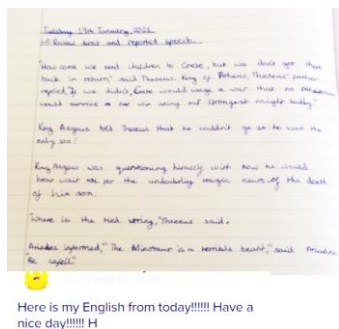 Tuesday 19th January, 2021
LI: Review direct and reported speech.
"How come we send children to Crete, but we don't get them
back in return" said Theseus. King of Athens, Theseus' father
replied, "If we didn't, Crete would wage a war that no Athenian
would survive a no win using out strongest might sadly"
King Aegeus told Theseus that he wouldn't go as he was the
only son!
King Aegeus was questioning himself with how he would
bear wait for the tragic news of the death
of his son.
"Where is the string," Theseus said.
Ariadne informed, "The Minotaur is a terrible beast," said Ariadne
"Be careful"
Here is my English from today!!!!!! Have a
nice day!!!!!! H